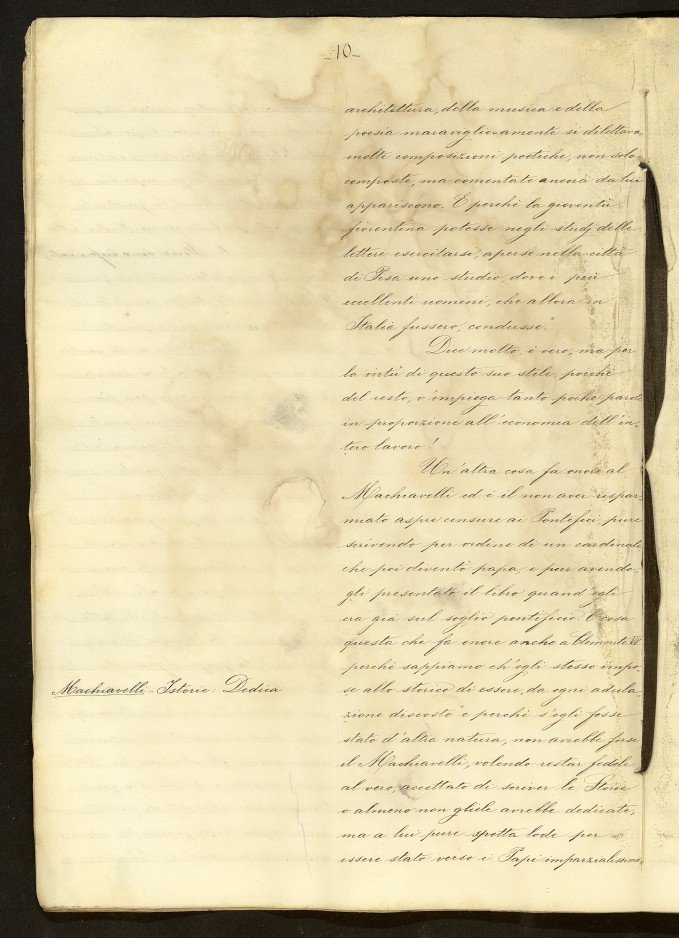 -10-
architettura, della musica e della
poesia maravigliosamente si dilettava,
molte composizioni poetiche, non solo
composte, ma comentate ancora da lui
appariscono. E perchè la gioventù
fiorentina potesse negli studj delle
lettere esercitarsi, aperse nella città
di Pisa uno studio, dove i più
eccellenti uomini, che allora in
Italia fussero, condusse."
Dice molto, è vero, ma per
la virtù di questo suo stile, poichè
del resto, v'impiega tanto poche parole
in proporzione all'economia dell'in-
tero lavoro!
Un'altra cosa fa onore al
Machiavelli ed è il non aver rispar-
miato aspre censure ai Pontefici, pure
scrivendo per ordine di un cardinale
che poi diventò papa, e pur avendo-
gli presentato il libro quand'egli
era già sul soglio pontificio. È cosa
questa che fa onore anche a Clemente VII
perchè sappiamo ch'egli stesso impo-
Machiavelli - Istorie: Dedica
se allo storico di essere "da ogni adula-
zione discosto" e perchè s'egli fosse
stato d'altra natura, non avrebbe forse
il Machiavelli, volendo restar fedele
al vero, accettato di scriver le Storie
o almeno non gliele avrebbe dedicate,
ma a lui pure spetta lode per
essere stato verso i Papi imparzialissimo,